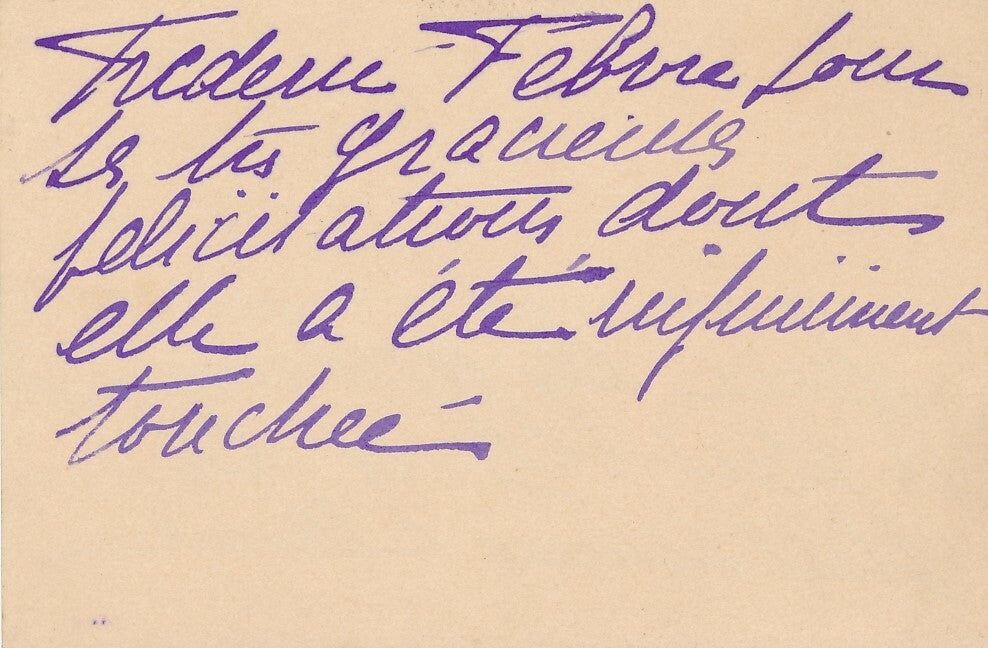 Frédéric Febvre pour
ses très gracieuses
félicitations dont
elle a été infiniment
touchée